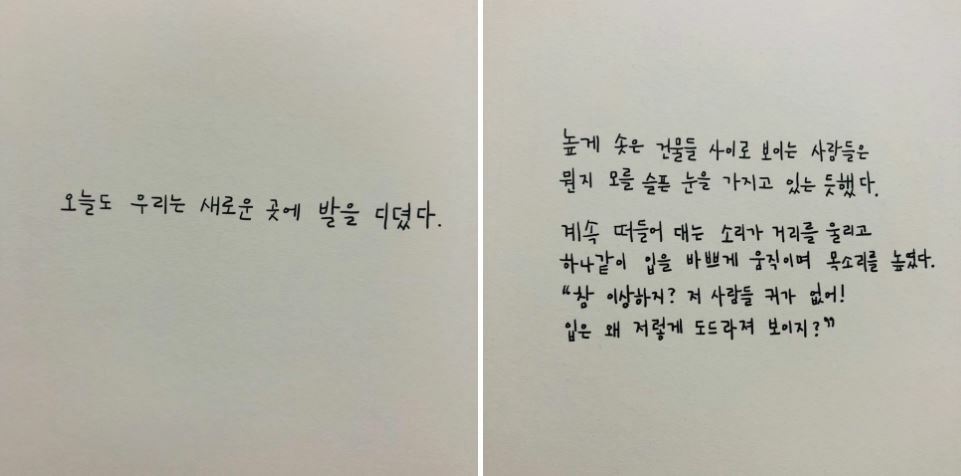 오늘도 우리는 새로운 곳에 발을 디뎠다.
높게 솟은 건물들 사이로 보이는 사람들은
뭔지 모를 슬픈 눈을 가지고 있는 듯했다.
계속 떠들어 대는 소리가 거리를 울리고
하나같이 입을 바쁘게 움직이며 목소리를 높였다.
"참 이상하지? 저 사람들 귀가 없어!
입은 왜 저렇게 도드라져 보이지?"